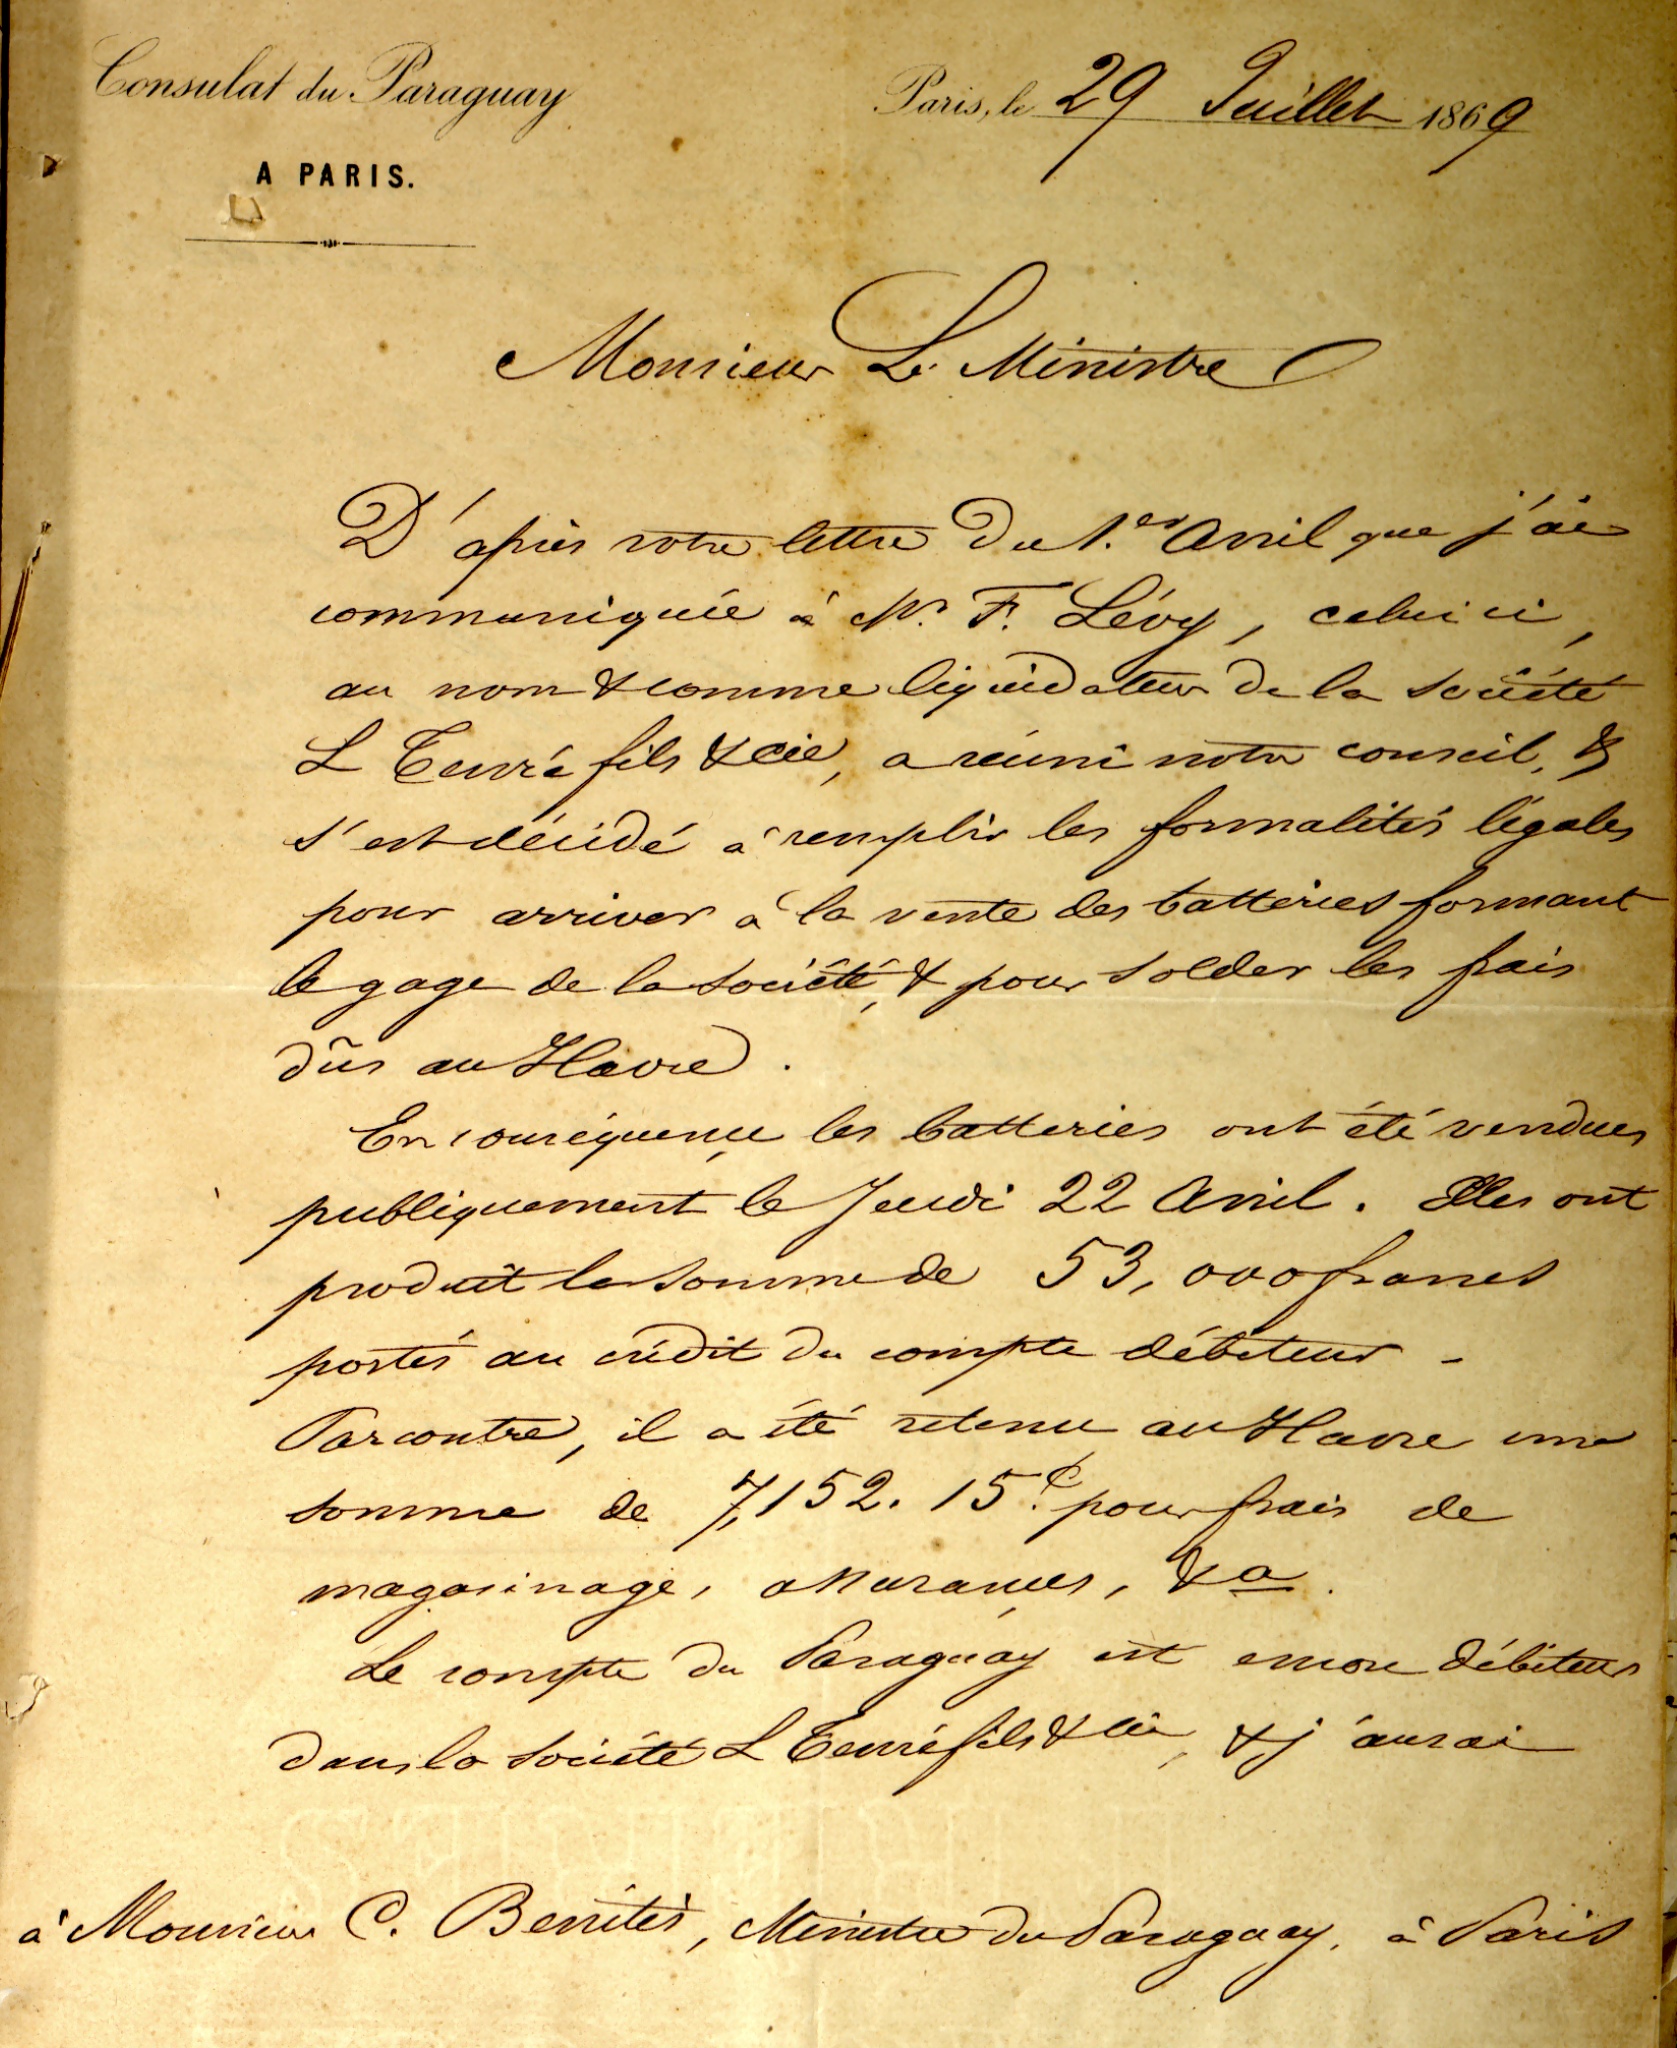 Consulat du Paraguay
A PARIS.
Paris, le 29 Juillet 1869
Monsieur Le Ministre
D'après votre lettre du 1.er Avril que j'ai
communiquée à Mr. F. Lévy, celui ci,
au nom & comme liquidateur de la Société
L Tenré fils & Cie, a réuni notre conseil, &
s'est décidé à remplir les formalités légales
pour arriver à la vente des batteries formant
le gage de la Société, & pour solder les frais
dûs au Havre.
En conséquence les batteries ont été vendues
publiquement le Jeudi 22 Avril. Elles ont
produit la somme de 53,000 francs
portés au crédit du compte débiteur -
Par contre, il a été retenu au Havre une
somme de 7,152. 15.c pour frais de
magasinage, assurances, &a.
Le compte du Paraguay est encore débiteur
dans la Société L Tenré fils & Cie, & j'aurai
à Monsieur C. Benites, Ministre du Paraguay, à Paris